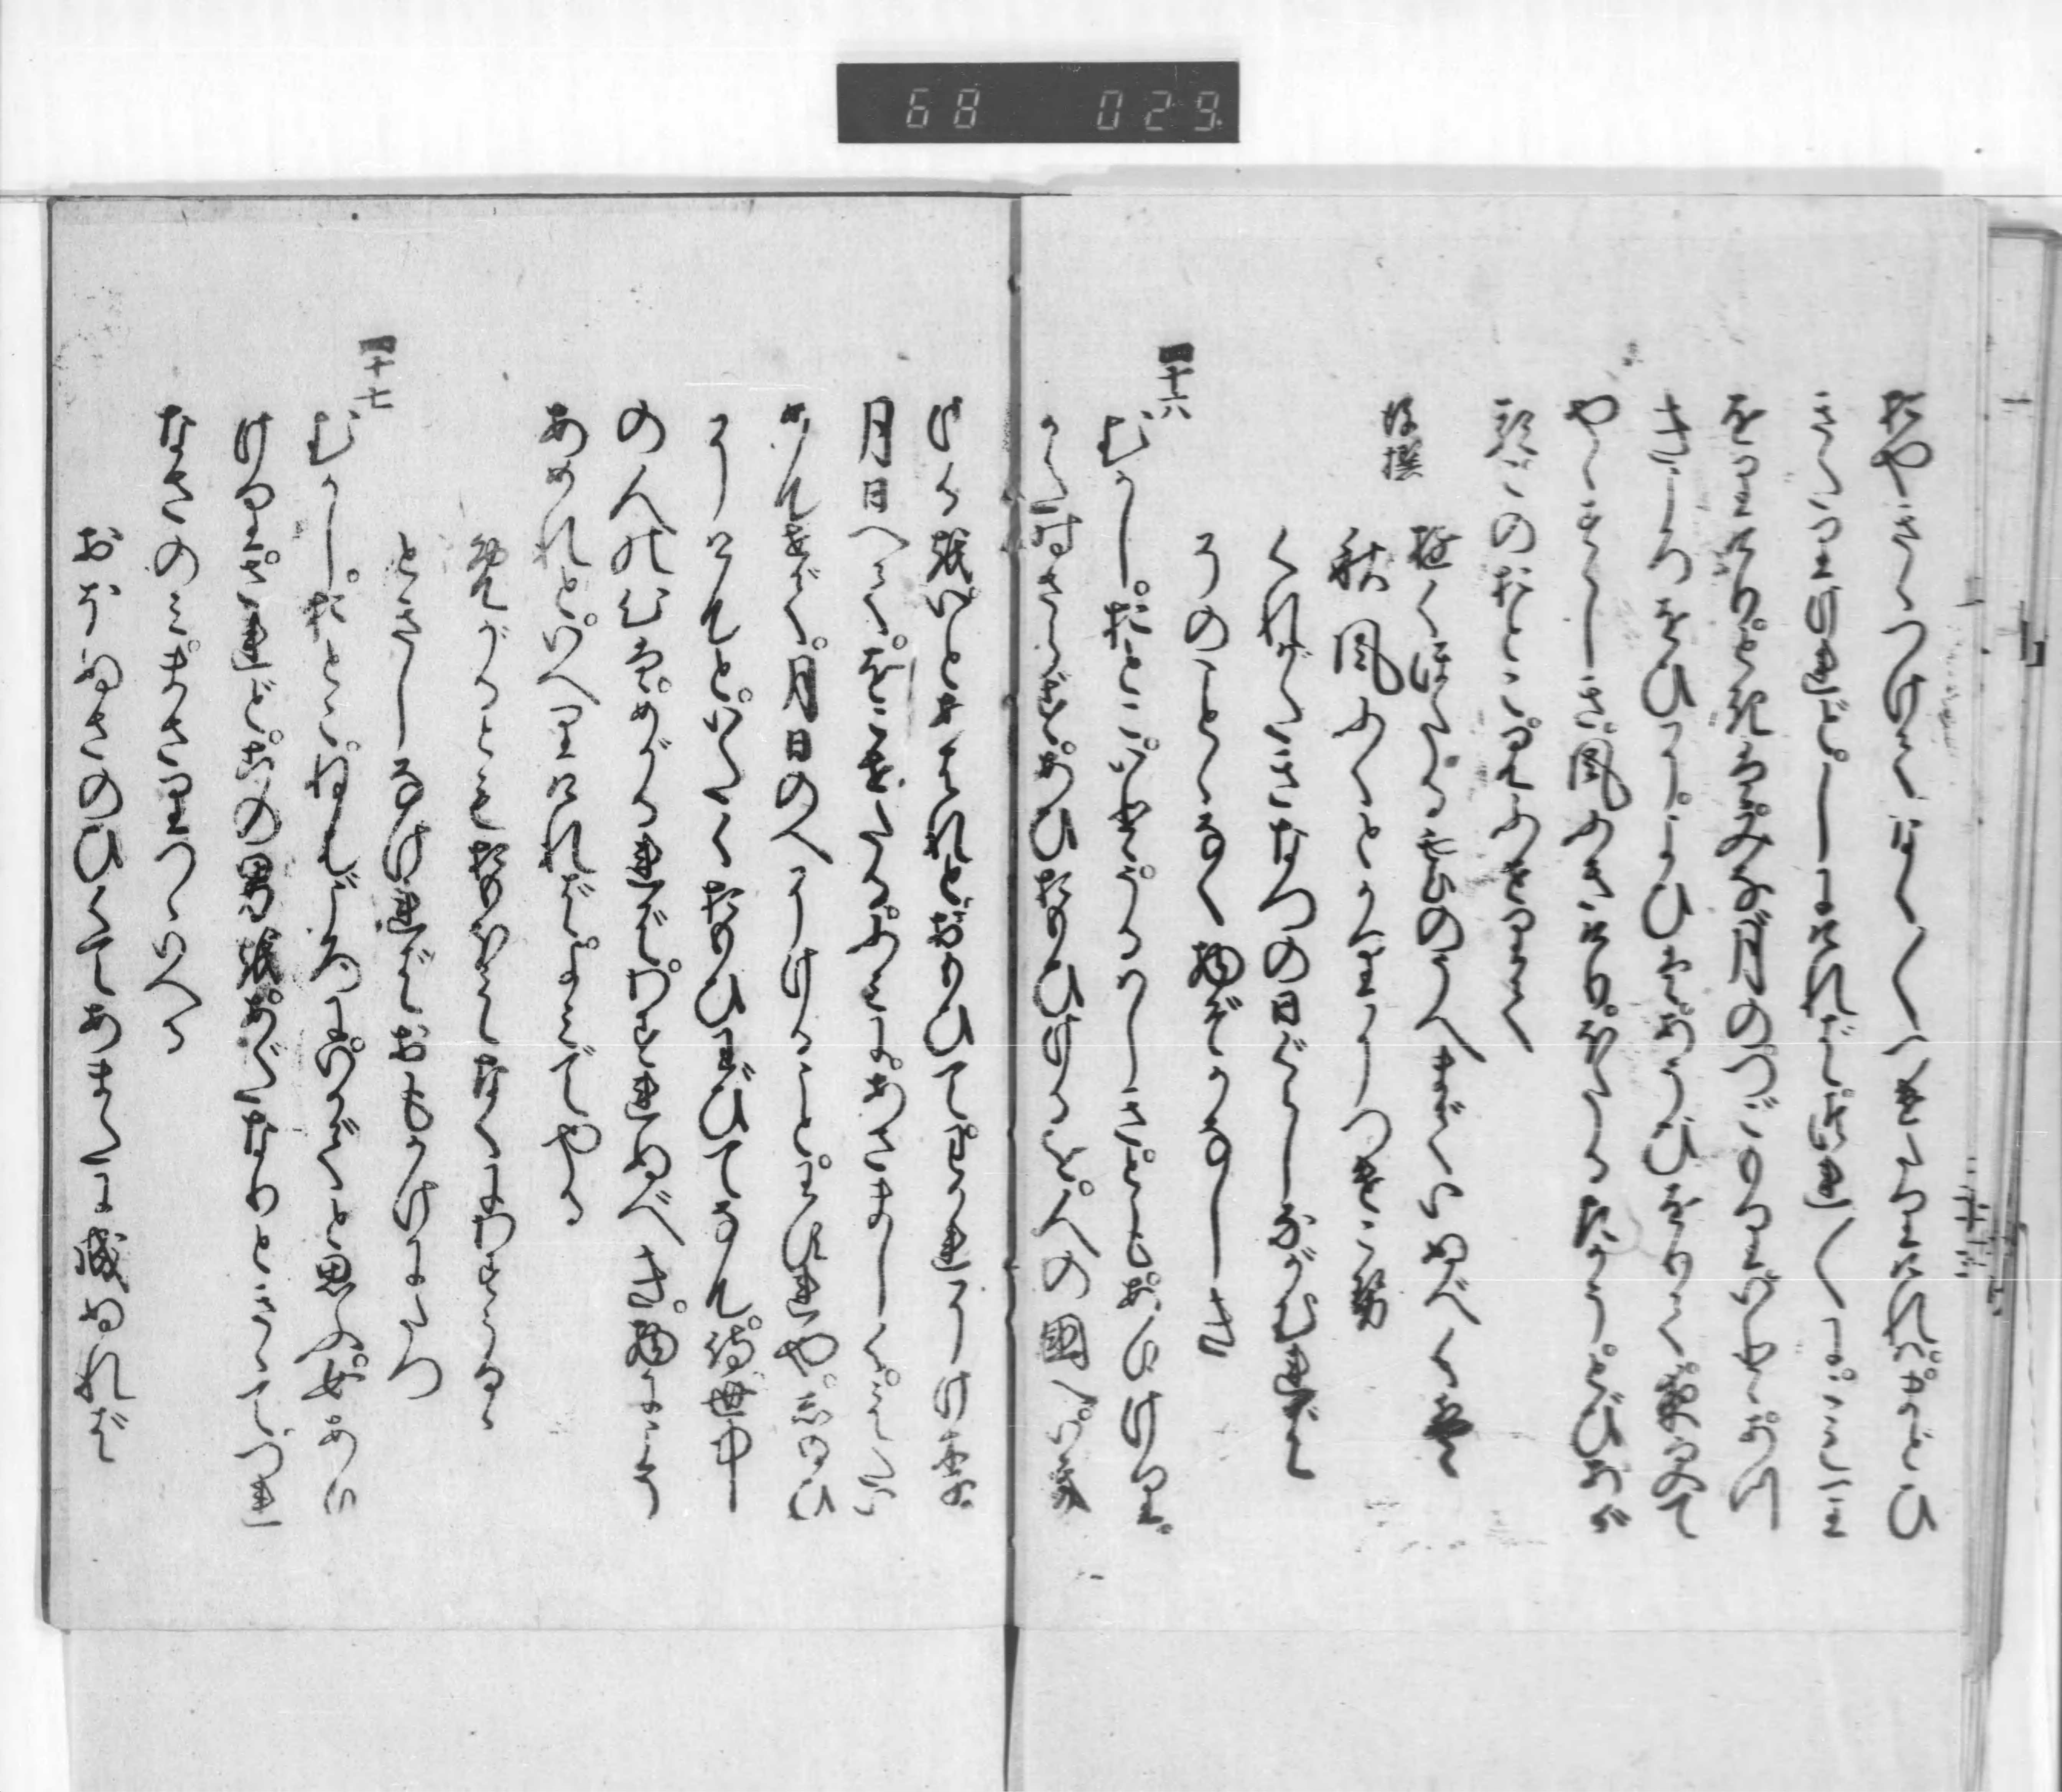 68 029
おやきゝつけてなく〳〵つけたりけれはまとひ
きたりけれとしにけれはつれ〳〵とこもり
をりけり時はみな月のつこもりいとあつき
ころをひによひはあそひをりて夜ふけて
やゝすゝしき風ふきけりほたるたかうとひあか
るこのおとこみふせりて
後撰
ゆくほたる雲のうへまていぬへくは
秋風ふくとかりにつけこせ
くれかたきなつの日くらしなかむれは
そのことゝなく物そかなしき
四十六
むかしおとこいとうるはしきともありけり
かた時さらすあひおもひけるを人の国へいき
けるをいとあはれとおもひてわかれにけり
月日へてをこせたるふみにあさましくたいめ
むせて月日のへにけることわすれやし給ひ
にけんといたくおもひわひてなん侍世中
の人の心はめかるれはわすれぬへき物にこそ
あめれといへりけれはよみてやる
めかるともおもほえなくにわすらるゝ
時しなけれはおもかけにたつ
四十七
むかしおとこねむころにいかてと思ふ女あり
けりされとこのおとこをあたなりときゝてつれ
なさのみまさりつゝいへる
おほぬさのひくてあまたに成ぬれは